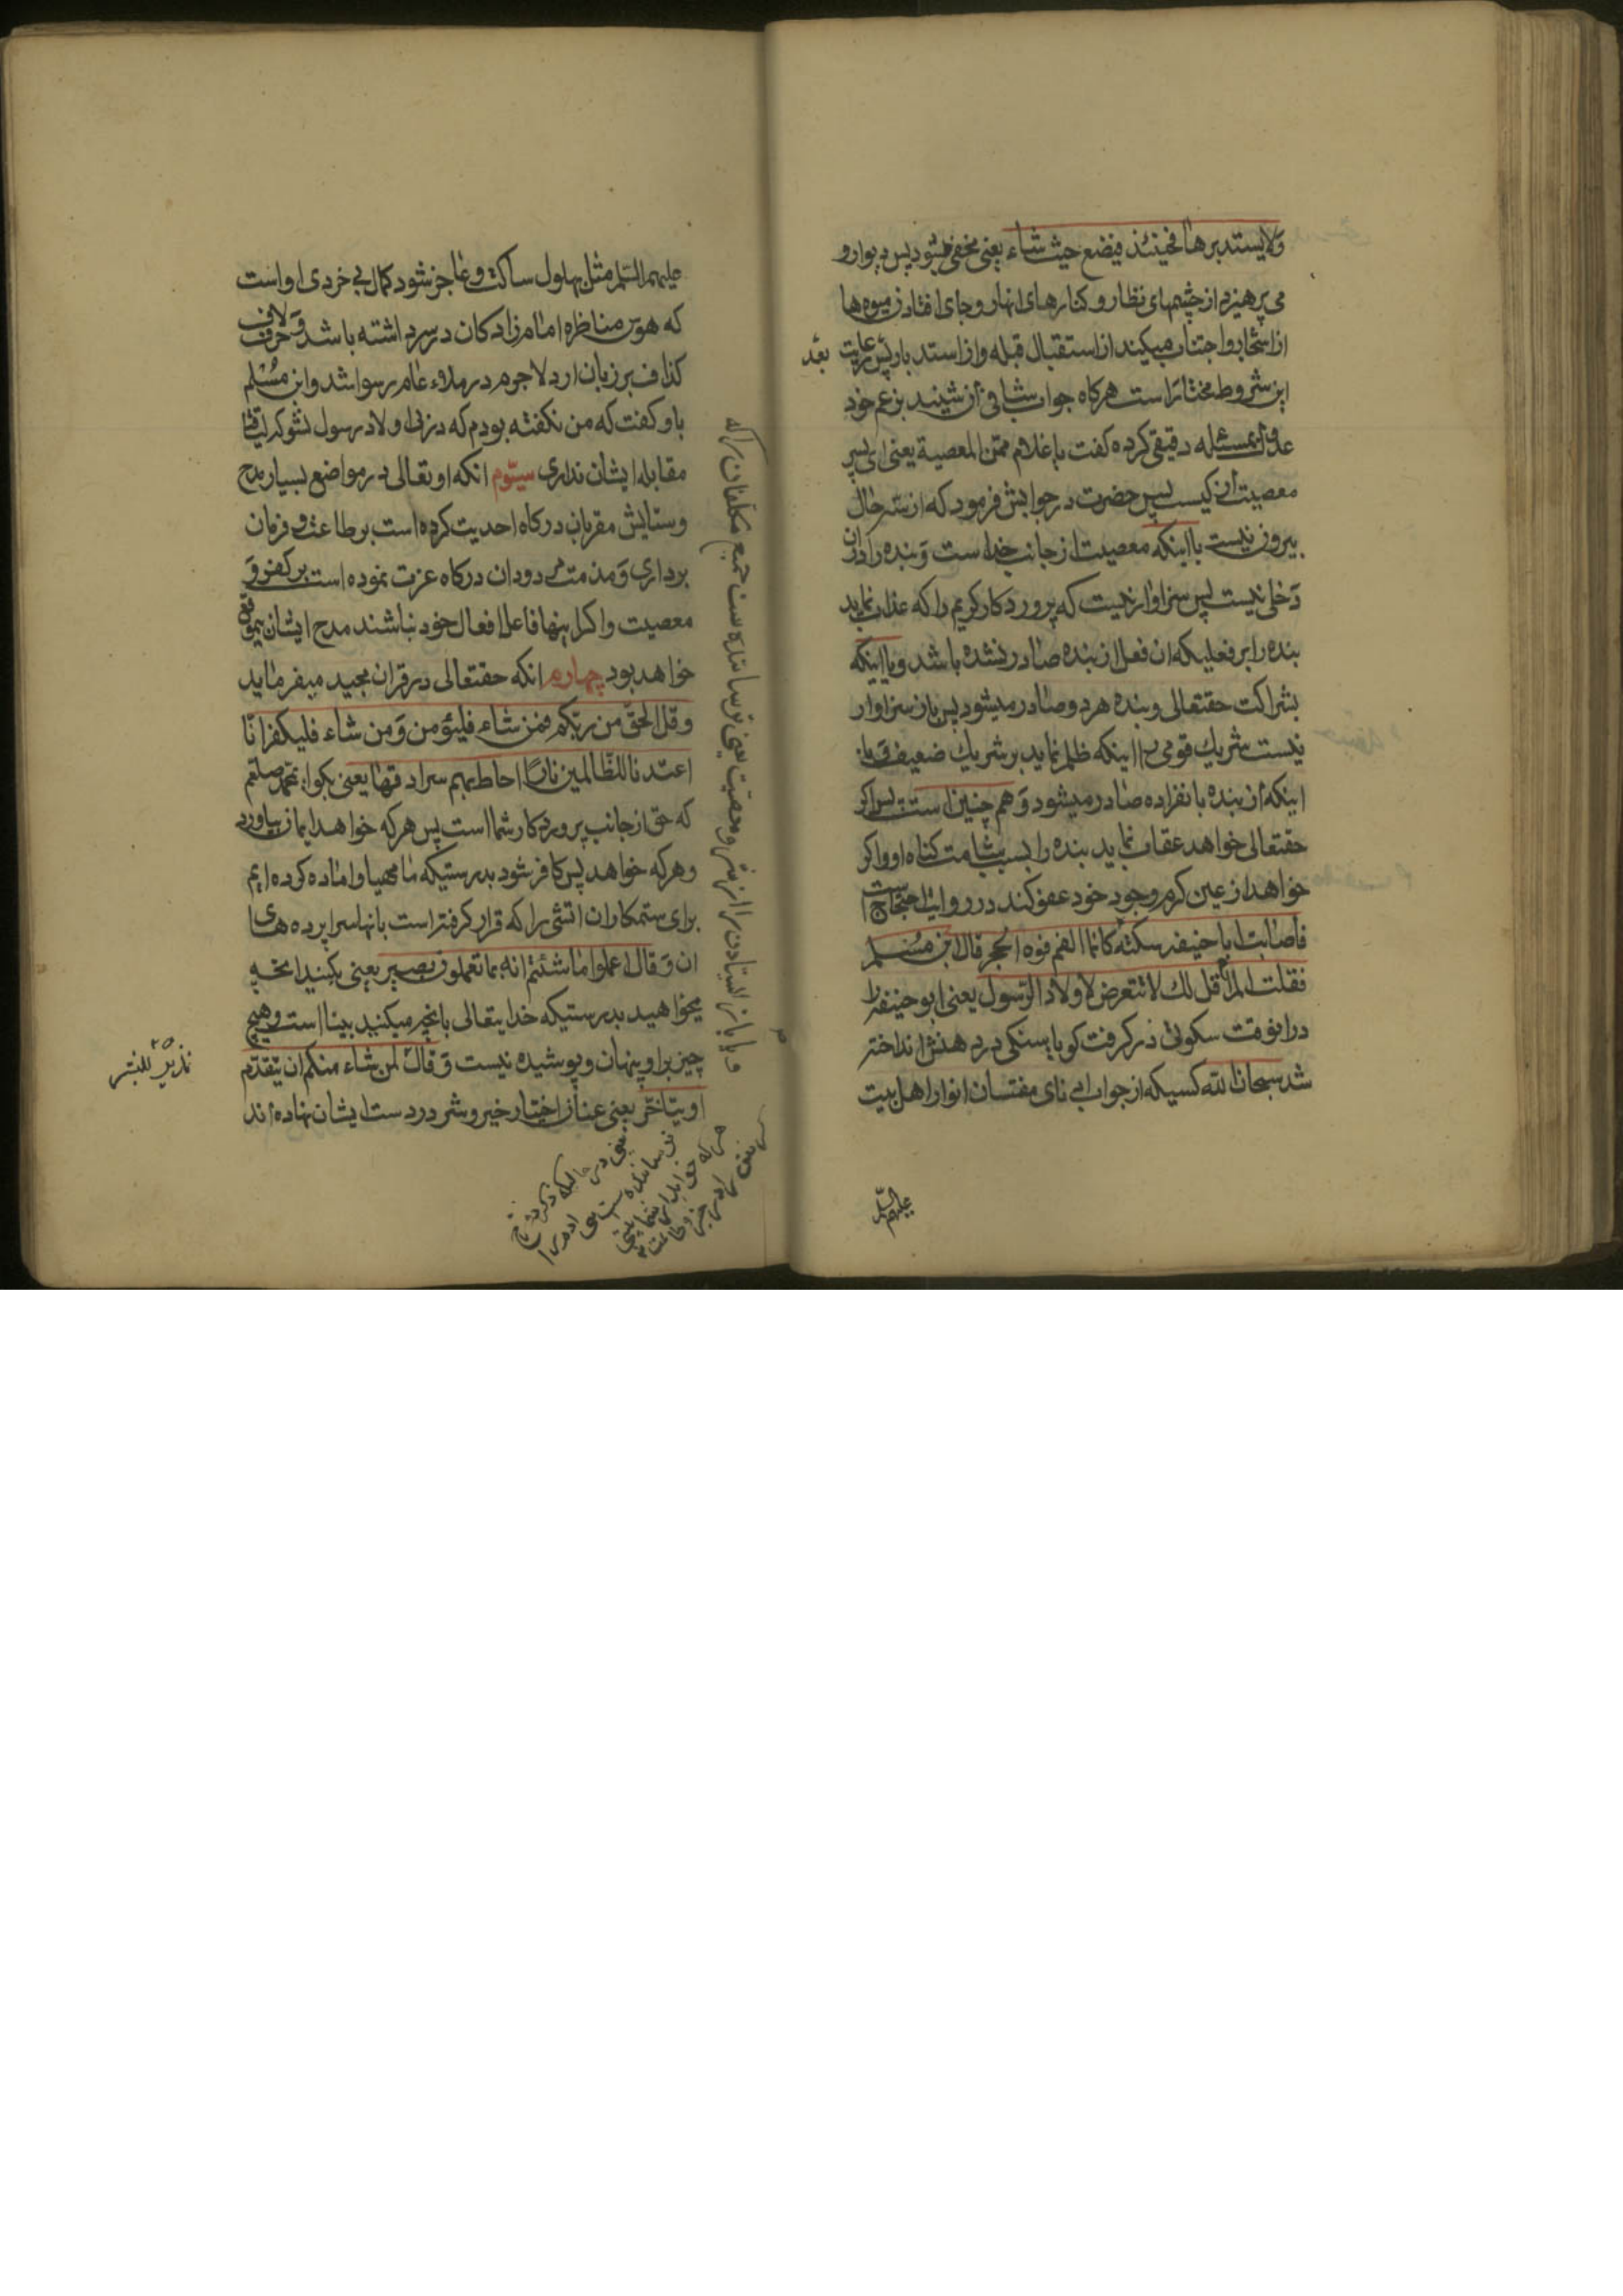 ولا یستدبرها فحینئذ فیضع حیث شاء یعنی مخفی میشود پس دیوار و
می پرهیزد از چشمهای نظار و کنارهای انهار و جای افتادن میوه ها
از اشجار و اجتناب میکند از استقبال قبله و از استدبار پس رعایت بعد
این شروط مختار است هرکاه جواب شافی از شنید بزعم خود
مسئله دقیقی کرده کفت یا غلام ممن المعصیة یعنی ای پسر
معصیت از کیست پس حضرت در جوابش فرمود که از سه حال
بیرون نیست یا اینکه معصیت از جانب خداست و بنده را دران
دخلی نیست پس سزاوار نیست که پروردکار کریم را که عذاب نماید
بنده را بر فعلیکه ان فعل از بنده صادر نشده باشد و یا اینکه
بشراکت حقتعالی و بنده هردو صادر میشود پس باز سزاوار
نیست شریك قوی را اینکه ظلم نماید بر شریك ضعیف و یا
اینکه از بنده بانفراده صادر میشود و هم چنین است پس اکر
حقتعالی خواهد عقاب نماید بنده را بسبب شامت کناه او و اکر
خواهد از عین کرم وجود خود عفو کند در روایت احتجاج است
فاصابت ابا حنیفه سکتة کانما القم فوه الحجر قال ابن مسلم
فقلت له الم اقل لك لا تتعرض لاولاد الرسول یعنی ابو حنیفه را
درانوقت سکوتی در کرفت کویا سنکی در دهنش انداخته
شد سبحان الله کسیکه از جواب بی نای مقتبسان انوار اهل بیت
علیهم السلم
علیهم السلم مثل بهلول ساکت و عاجز شود کمال بی خردی او است
که هوس مناظره امام زادکان در سر داشته باشد و حرف لاف
کذاف بر زبان ارد لاجرم در ملاء عام رسوا شد و ابن مسلم
باو کفت که من نکفته بودم که در پی اولاد رسول نشو که لیاقت
مقابله ایشان نداری سیّوم انکه او تعالی در مواضع بسیار مدح
و ستایش مقربان درکاه احدیت کرده است بر طاعت و فرمان
برداری و مذمت مردودان درکاه عزت نموده است بر کفر و
معصیت و اکر اینها فاعل افعال خود نباشند مدح ایشان بیموقع
خواهد بود چهارم انکه حقتعالی در قران مجید میفرماید
و قل الحق من ربکم فمن شاء فلیؤمن و من شاء فلیکفر انا
اعتدنا للظالمین نارا احاط بهم سرادقها یعنی بکو ای محمد صلعم
که حق از جانب پروردکار شما است پس هرکه خواهد ایمان بیاورد
و هرکه خواهد پس کافر شود بدرستیکه ما مهیا و اماده کرده ایم
برای ستمکاران اتشی را که قرار کرفته است بانها سراپرده های
ان و قال اعملوا ما شئتم انه بما تعملون بصیر یعنی بکنید انچه
میخواهید بدرستیکه خدایتعالی بانچه میکنید بینا است و هیچ
چیز بر او پنهان و پوشیده نیست و قال لمن شاء منکم ان یتقدم
او یتاخر یعنی عنان اختیار خیر و شر در دست ایشان نهاده اند
نذیرا للبشر